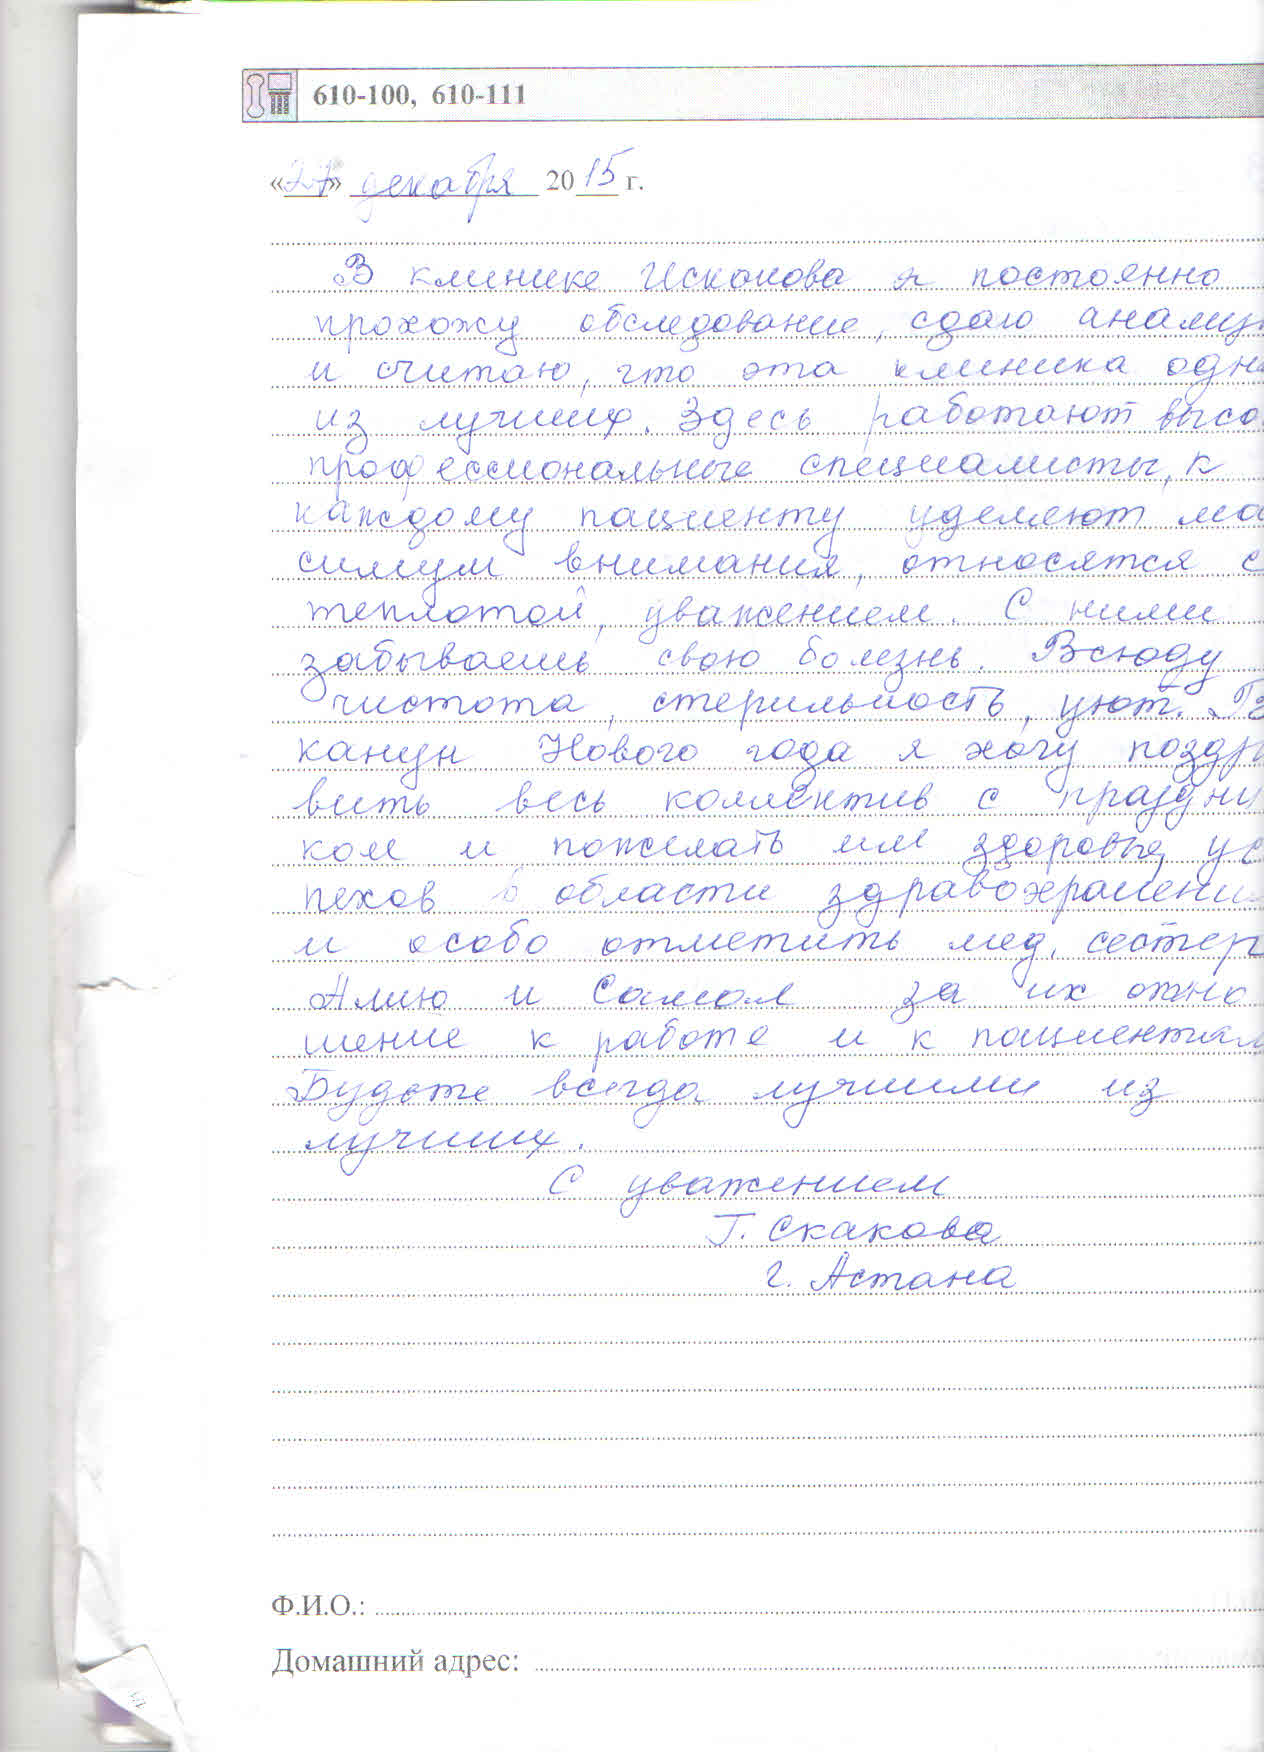 610-100, 610-111
«27» декабря 2015 г.
В клинике Искакова я постоянно
прохожу обследование, сдаю анализ
и считаю, что эта клиника одна
из лучших. Здесь работают высо
профессиональные специалисты, к
каждому пациенту уделяют ма
симум внимания, относятся с
теплотой, уважением. С ними
забываешь свою болезнь. Всюду
чистота, стерильность, уют.
канун Нового года я хочу поздра
вить весь коллектив с праздни
ком и пожелать им здоровья, ус
пехов в области здравоохранени
и особо отметить мед. сестер
Алию и Самал за их отно
шение к работе и к пациентам
Будьте всегда лучшими из
лучших.
С уважением
Г. Скакова
г. Астана
Ф.И.О.:
Домашний адрес: